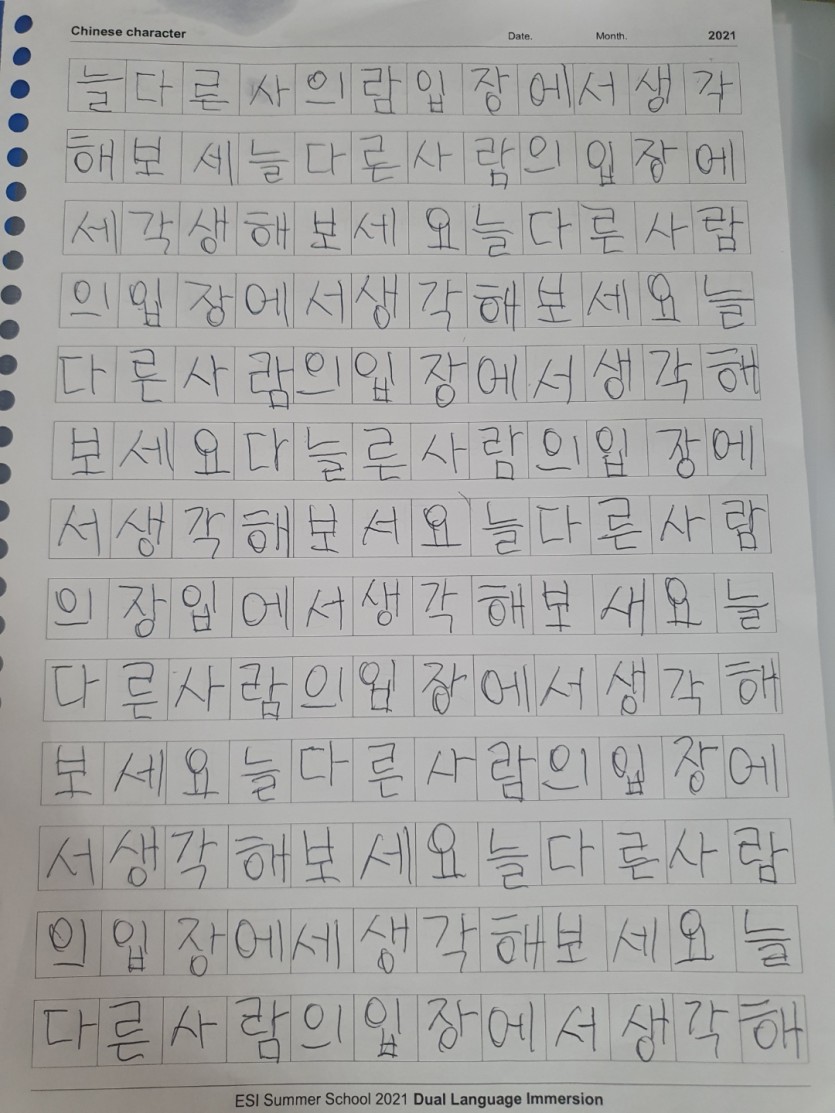 Chinese character Date. Month. 2021
늘다른사의람입장에서생각
해보세늘다른사람의입장에
세각생해보세요늘다른사람
의입장에서생각해보세요늘
다른사람의입장에서생각해
보세요다늘른사람의입장에
서생각해보서요늘다른사람
의장입에서생각해보새요늘
다른사람의입장에서생각해
보세요늘다른사람의입장에
서생각해보세요늘다른사람
의입장에세생각해보세요늘
다른사람의입장에서생각해
ESI Summer School 2021 Dual Language Immersion